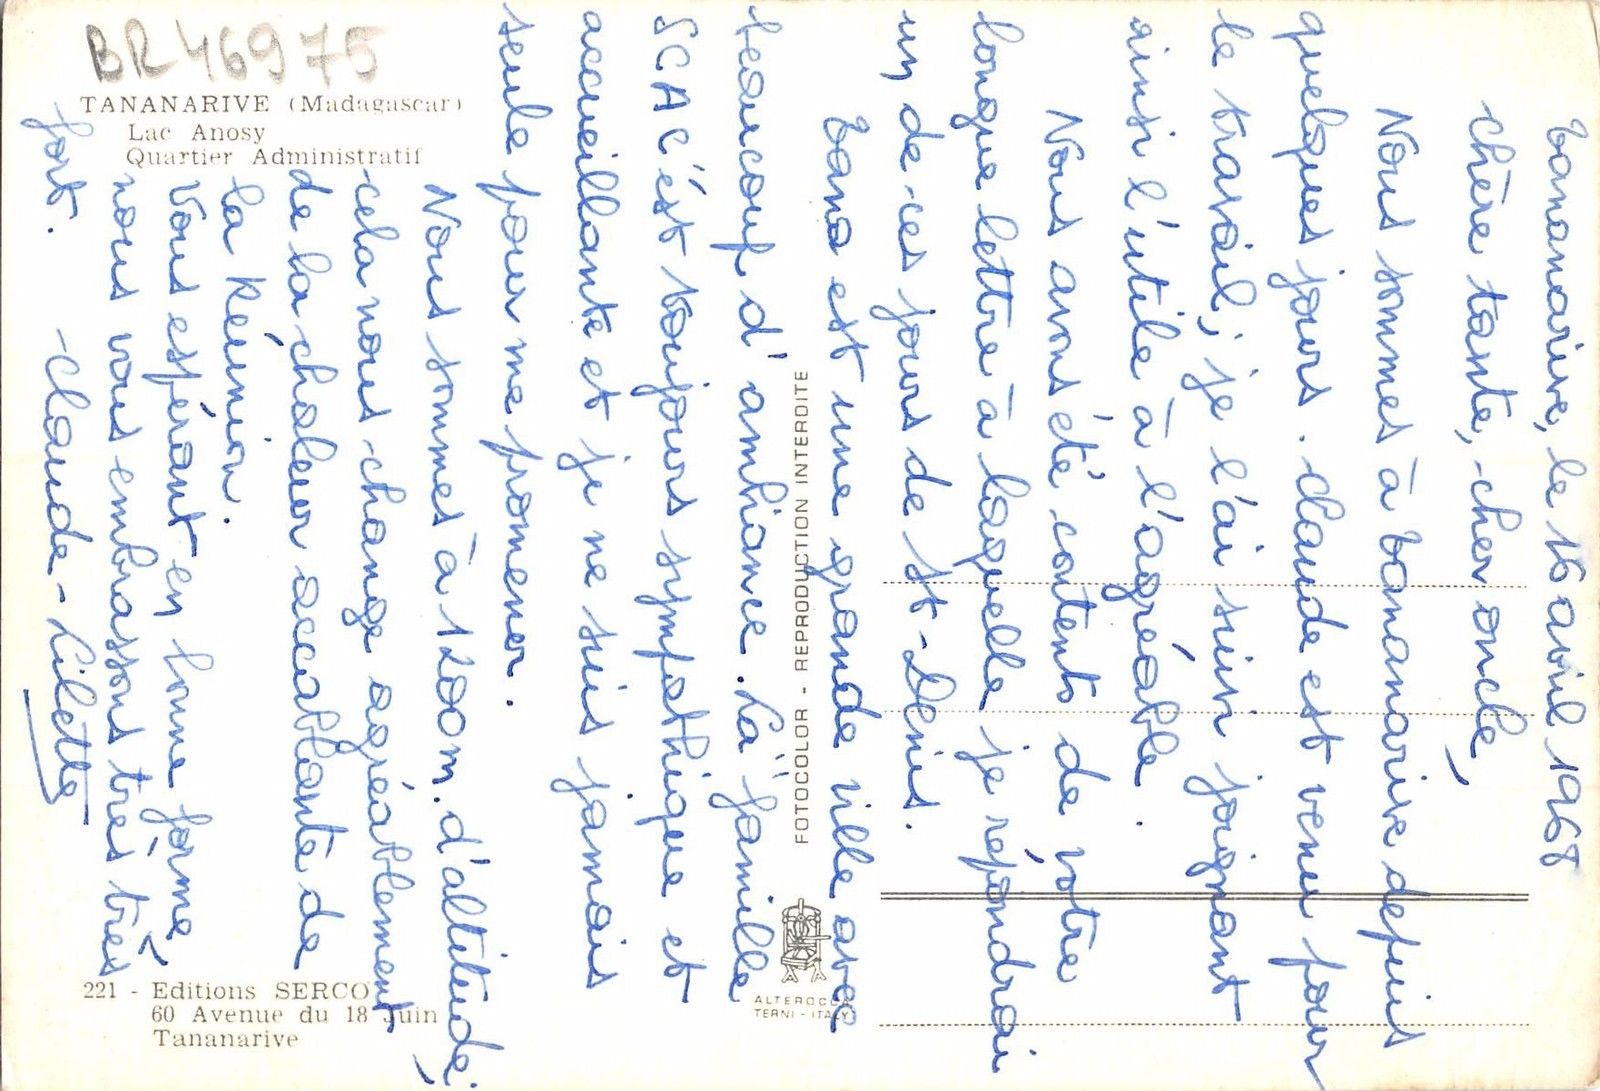 BR 46975
TANANARIVE (Madagascar)
Lac Anosy
Quartier Administratif
Tananarive, le 16 avril 1968
chère tante, cher oncle,
Nous sommes à Tananarive depuis
quelques jours. Claude est venu pour
le travail, je l'ai suivi joignant
ainsi l'utile à l'agréable.
Nous avons été contents de votre
longue lettre à laquelle je répondrai
un de ces jours de St-Denis.
Tana est une grande ville avec
beaucoup d'ambiance. La "famille
SCAC" est toujours sympathique et
accueillante et je ne suis jamais
seule pour me promener.
Nous sommes à 1200m. d'altitude,
cela nous change agréablement
de la chaleur accablante de
la Réunion.
Vous espérant en bonne forme,
nous vous embrassons très très
fort.
Claude - Lilette
FOTOCOLOR - REPRODUCTION INTERDITE
ALTEROCCA
TERNI - ITALY
221 - Editions SERCO
60 Avenue du 18 Juin
Tananarive